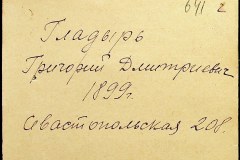 641 г
Гладырь
Григорий Дмитриевич
1899г.
Севастопольская 208.